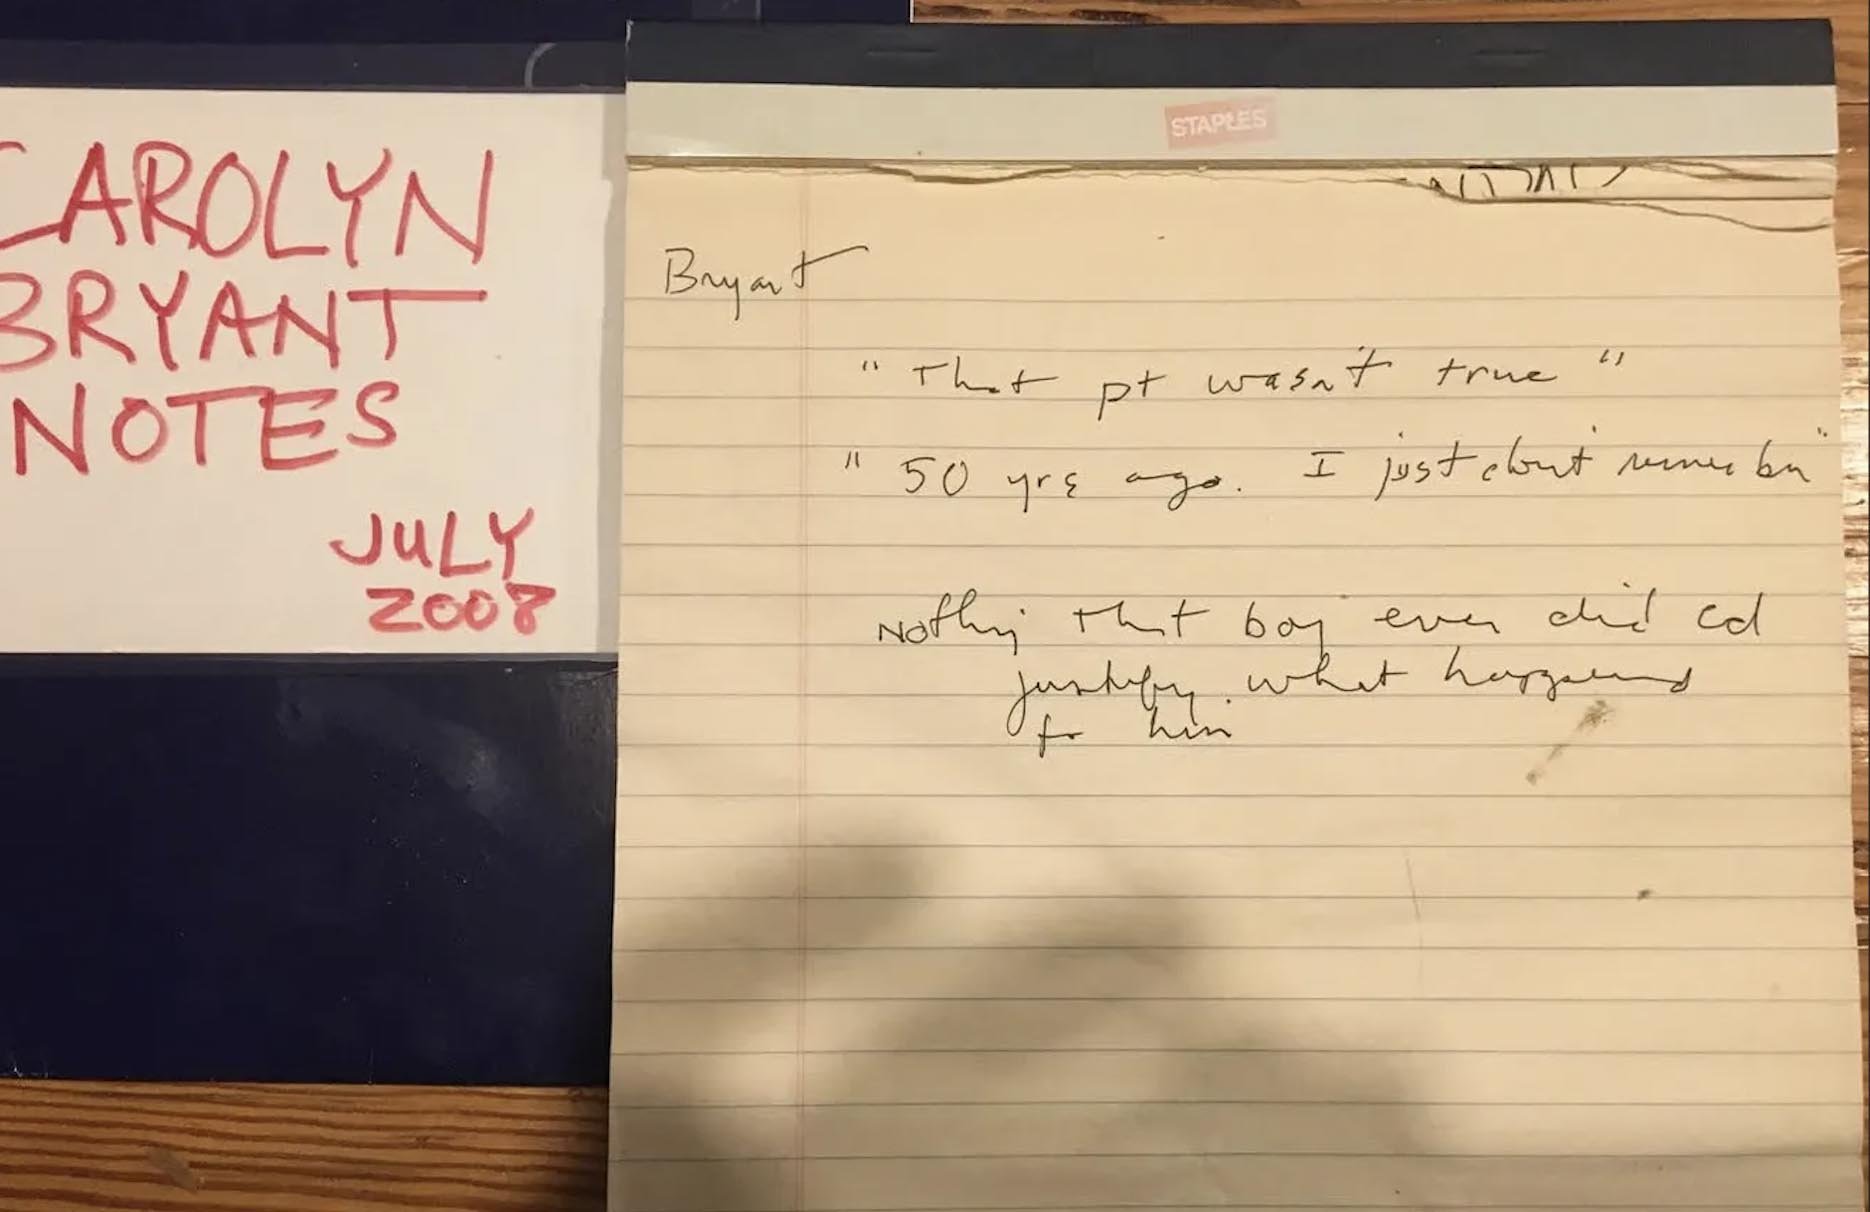 CAROLYN
BRYANT
NOTES
JULY
2008
STAPLES
Bryant
"That pt wasn't true"
"50 yrs ago. I just dont remember"
Nothing that boy ever did cd
justify what happened
to him